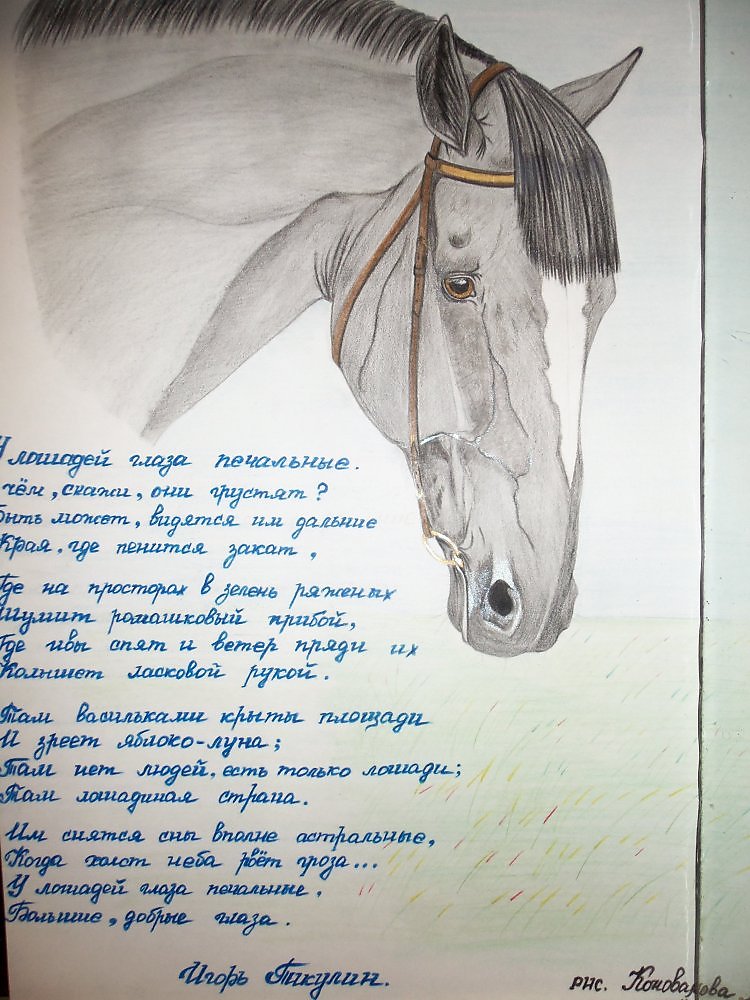 У лошадей глаза печальные.
чём, скажи, они грустят?
Быть может, видятся им дальние
Края, где пенится закат,
Где на просторах в зелень ряженых
Шумит ромашковый прибой,
Где ивы спят и ветер пряди их
Колышет ласковой рукой.
Там васильками крыты площади
И зреет яблоко-луна;
Там нет людей, есть только лошади;
Там лошадиная страна.
Им снятся сны вполне астральные,
Когда холст неба рвёт гроза...
У лошадей глаза печальные,
Большие, добрые глаза.
Игорь Тикулин.
рис. Коновалова